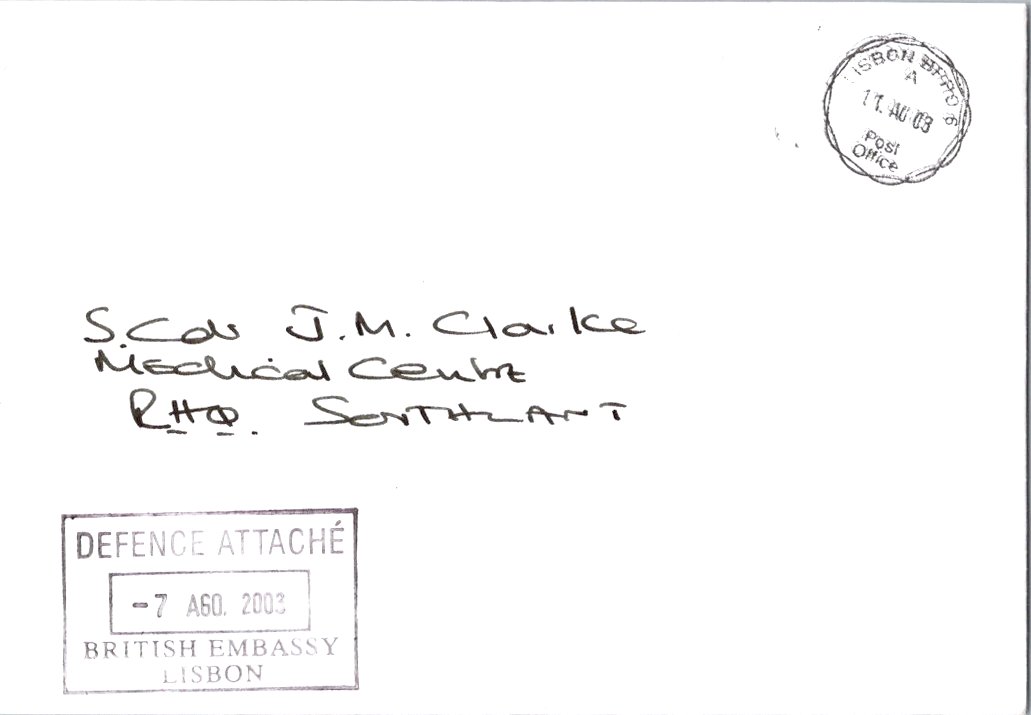 LISBON BFPO 6
A
11. AU 03
Post
Office
S.Cdr J.M. Clarke
Medical Centre
RHQ. SOUTHLANT
DEFENCE ATTACHÉ
-7 AGO. 2003
BRITISH EMBASSY
LISBON